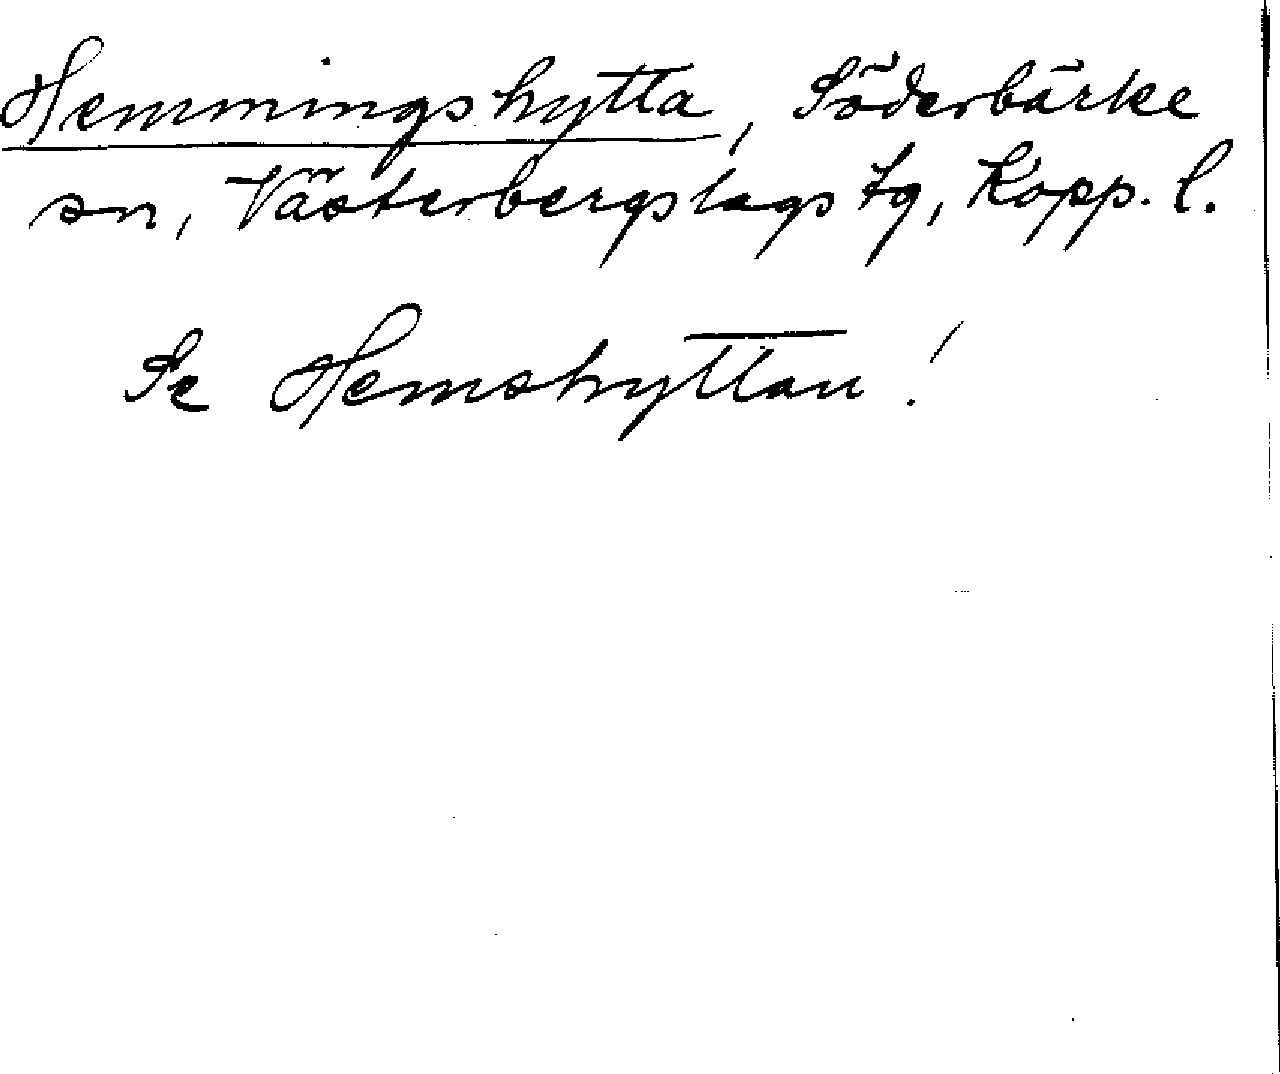 Hemmingshytta, Söderbärke
sn, Västerbergslags tg, Kopp. l.
Se Hemshyttan!